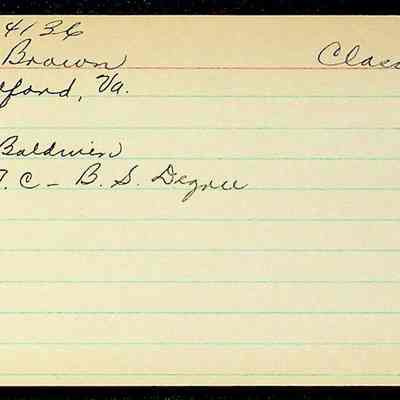 4136
Brown Class
dford, Va.
Baldwin
T. C - B. S. Degree